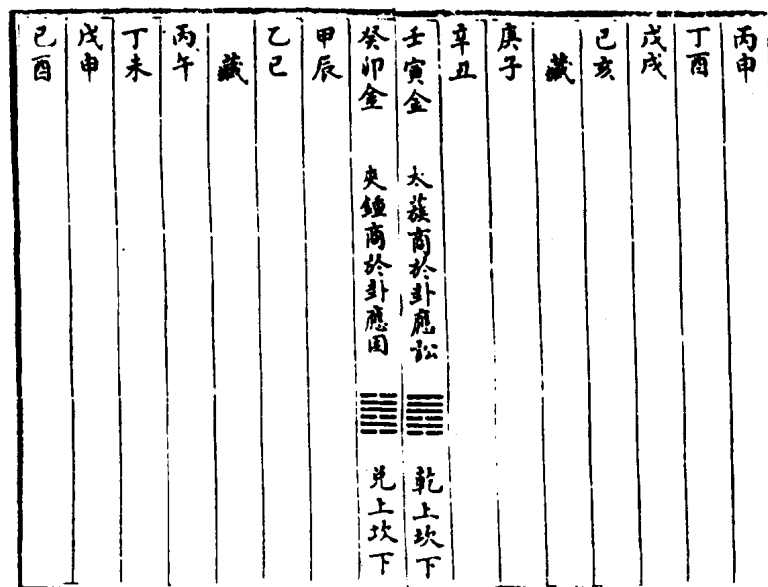 丙申
丁酉
戊戌
己亥
藏
庚子
辛丑
壬寅金 太蔟商於卦應訟 乾上坎下
癸卯金 夾鍾商於卦應困 兌上坎下
甲辰
乙巳
藏
丙午
丁未
戊申
己酉